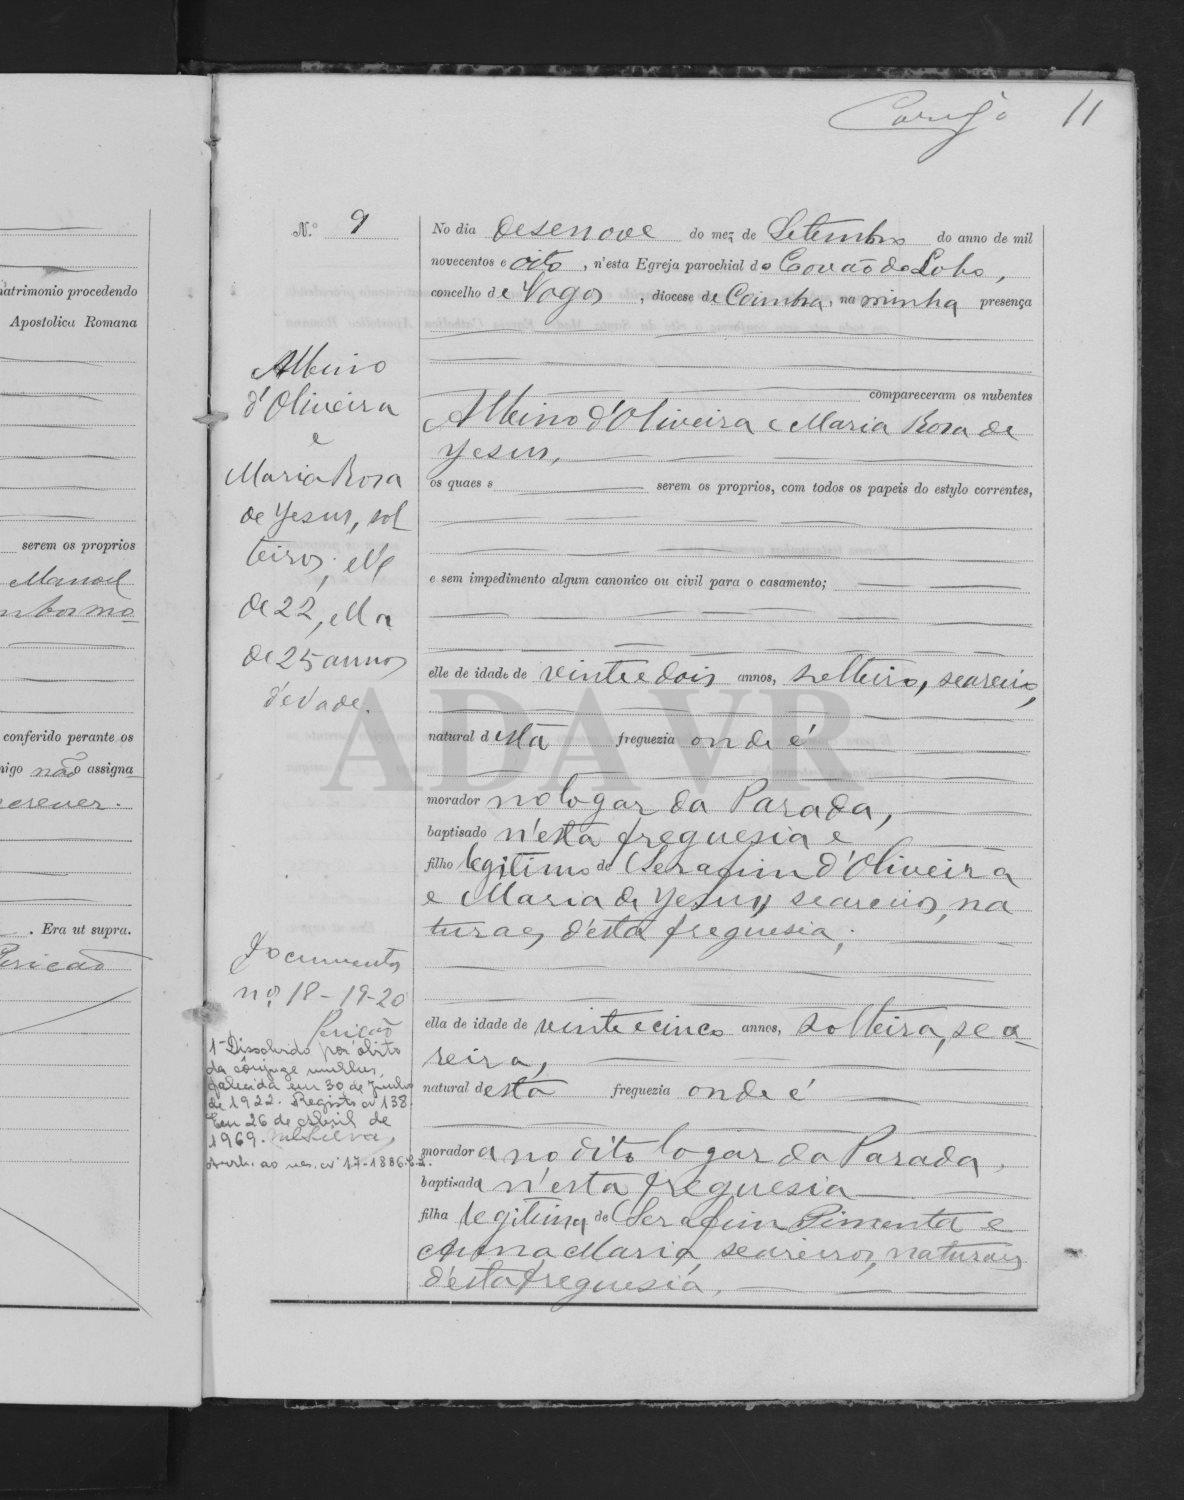 11
N.º 9
Albino
d'Oliveira
e
Maria Rosa
de Yesus, sol
teiros; elle
de 22, ella
de 25 annos
d'edade.
Documentos
nos 18-19-20
Pericão
1-Dissolvido por óbito
da cônjuge mulher,
falecida em 30 de Junho
de 1922. Registo nº 138.
Em 26 de Abril de
1969.
No dia desenove do mez de Setembro do anno de mil
novecentos e oito, n'esta Egreja parochial do Covão do Lobo,
concelho de Vagos, diocese de Coimbra, na minha presença
compareceram os nubentes
Albino d'Oliveira e Maria Rosa de
Yesus,
os quaes s serem os proprios, com todos os papeis do estylo correntes,
e sem impedimento algum canonico ou civil para o casamento;
elle de idade de vinte e dois annos, solteiro, seareiro,
natural d'esta freguezia onde é
morador no logar da Parada,
baptisado n'esta freguesia e
filho legitimo de Serafim d'Oliveira
e Maria de Yesus, seareiros, na
turaes d'esta freguesia;
ella de idade de vinte e cinco annos, solteira, sea
reira,
natural d'esta freguezia onde é
moradora no dito logar da Parada,
baptisada n'esta freguesia
filha legitima de Serafim Pimenta e
Anna Maria, seareiros, naturaes
d'esta freguesia,
matrimonio procedendo
Apostolica Romana
serem os proprios
Manoel
conferido perante os
migo não assigna
screver.
. Era ut supra.
Pericão
ADAVR